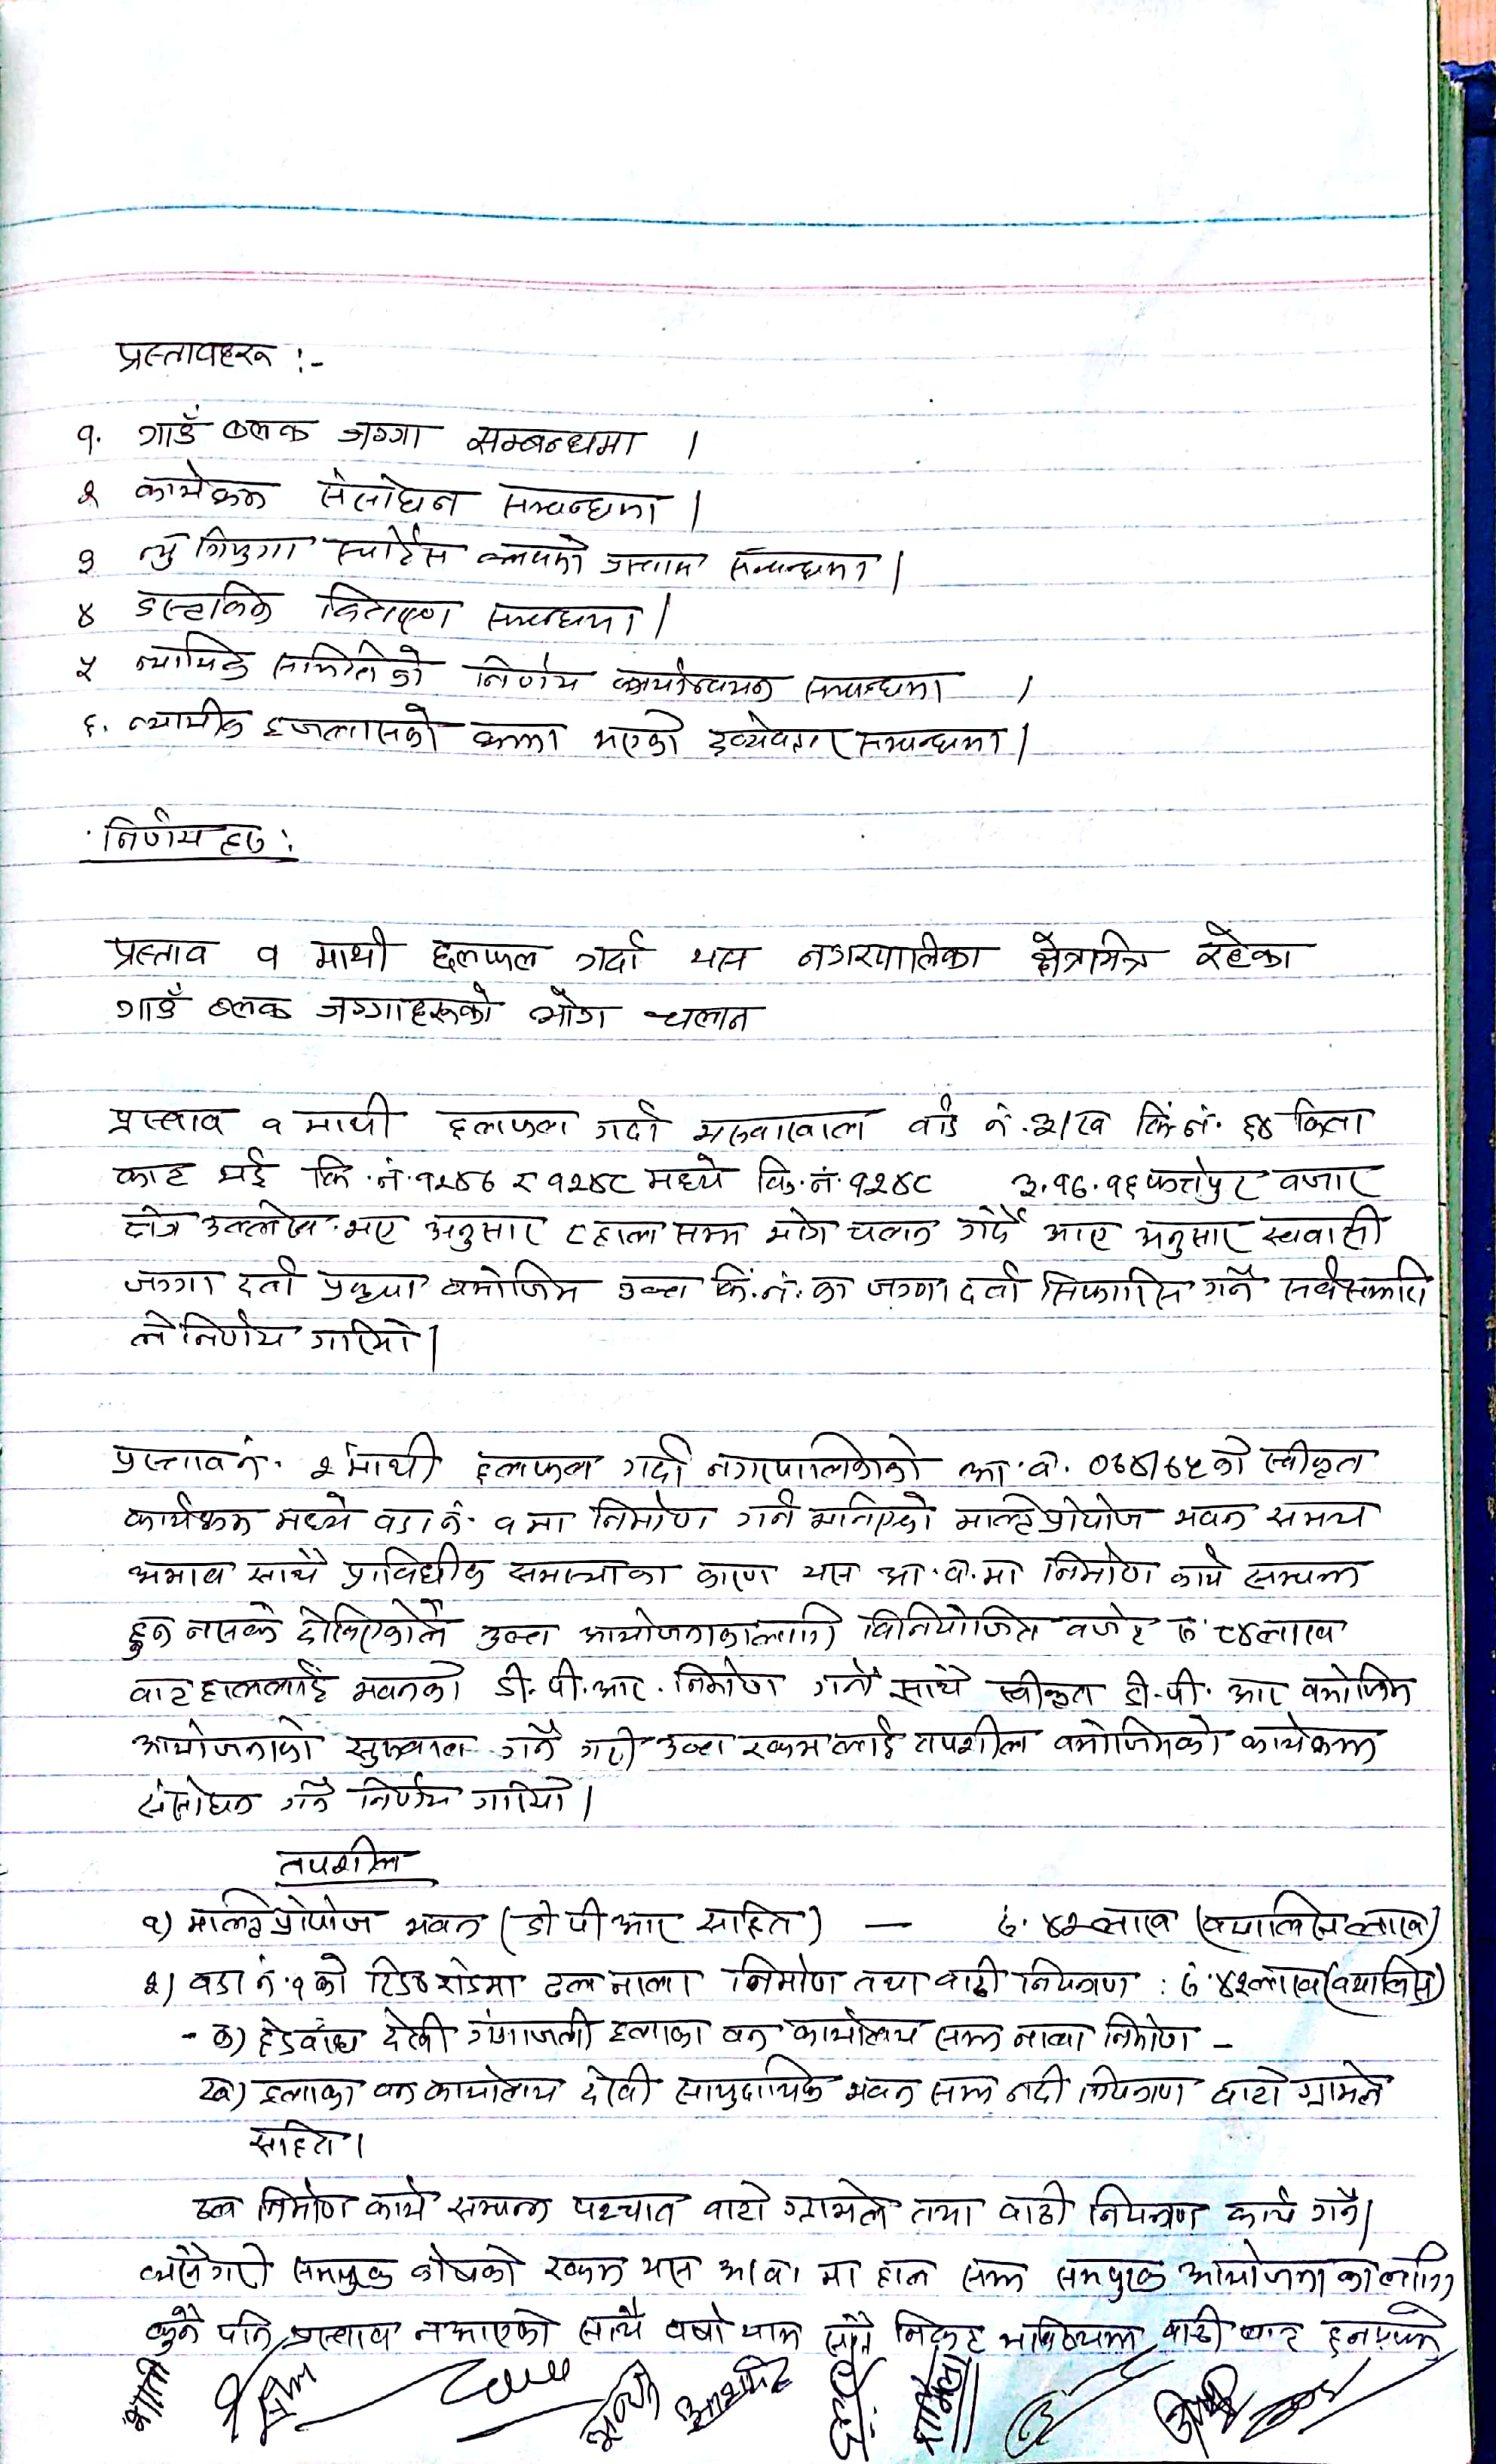 प्रस्तावहरू :-
१. गाउँ ब्लक जग्गा सम्बन्धमा ।
२ कार्यक्रम संसोधन सम्बन्धमा ।
३ न्यु त्रियुगा स्पोर्टस क्लबको प्रस्ताव सम्बन्धमा ।
४ वितरण सम्बन्धमा ।
५ न्यायिक समितिको निर्णय कार्यान्वयन सम्बन्धमा ।
६. न्यायीक इजलासको भएको सम्बन्धमा ।
निर्णयहरु :
प्रस्ताव १ माथी छलफल गर्दा यस नगरपालिका क्षेत्रभित्र रहेका
गाउँ ब्लक जग्गाहरूको भोग चलान
प्रस्ताव १ माथी छलफल गर्दा वार्ड नं. ३/ख कि.नं. ६४ कित्ता
काट भई कि.नं. १२४७ र १२४८ मध्ये कि.नं. १२४८ ३.१७.१६ फत्तेपुर बजार
क्षेत्र उल्लेख भए अनुसार र हाल सम्म भोग चलन गर्दै आए अनुसार
जग्गा दर्ता बमोजिम उक्त कि.नं. का जग्गा दर्ता सिफारिस गर्ने सर्वसम्मति
ले निर्णय गरियो ।
प्रस्ताव नं. २ माथी छलफल गर्दा नगरपालिकाको आ.व. ०७४/७५ को स्वीकृत
कार्यक्रम मध्ये वडा नं. १ मा निर्माण गर्ने भनिएको मल्टिप्रोपोज भवन समय
अभाव साथै प्राविधीक समस्याका कारण यस आ.व. मा निर्माण कार्य सम्पन्न
हुन नसक्ने देखिएकोले उक्त आयोजनाकालागि विनियोजित बजेट रु ८४ लाख
बाट हाललाई भवनको डी.पी.आर. निर्माण गर्ने साथै स्वीकृत डी.पी. आर बमोजिम
आयोजनाको सुरुवात गर्ने गरी उक्त रकमलाई तपशील बमोजिमको कार्यक्रम
संसोधन गर्ने निर्णय गरियो ।
तपशील
१) मल्टिप्रोपोज भवन (डी पी आर सहित) — रु. ४२ लाख (बयालिस लाख)
२) वडा नं. १ को रोडमा ढल नाला निर्माण तथा बाढी नियन्त्रण : रु ४२ लाख (बयालिस)
- क) हेडबाँध देखी गंगाजली इलाका वन कार्यालय सम्म नाला निर्माण -
ख) इलाका वन कार्यालय देखी सामुदायिक भवन सम्म नदी नियन्त्रण बाटो ग्राभेल
सहित ।
ढल निर्माण कार्य सम्पन्न पश्चात बाटो ग्राभेल तथा बाढी नियन्त्रण कार्य गर्ने ।
त्यसैगरी समपुरक कोषको रकम यस आ.व. मा हाल सम्म समपुरक आयोजना का लागि
कुनै पनि प्रस्ताव नआएको साथै वर्षा याम निकट बाढी बाट